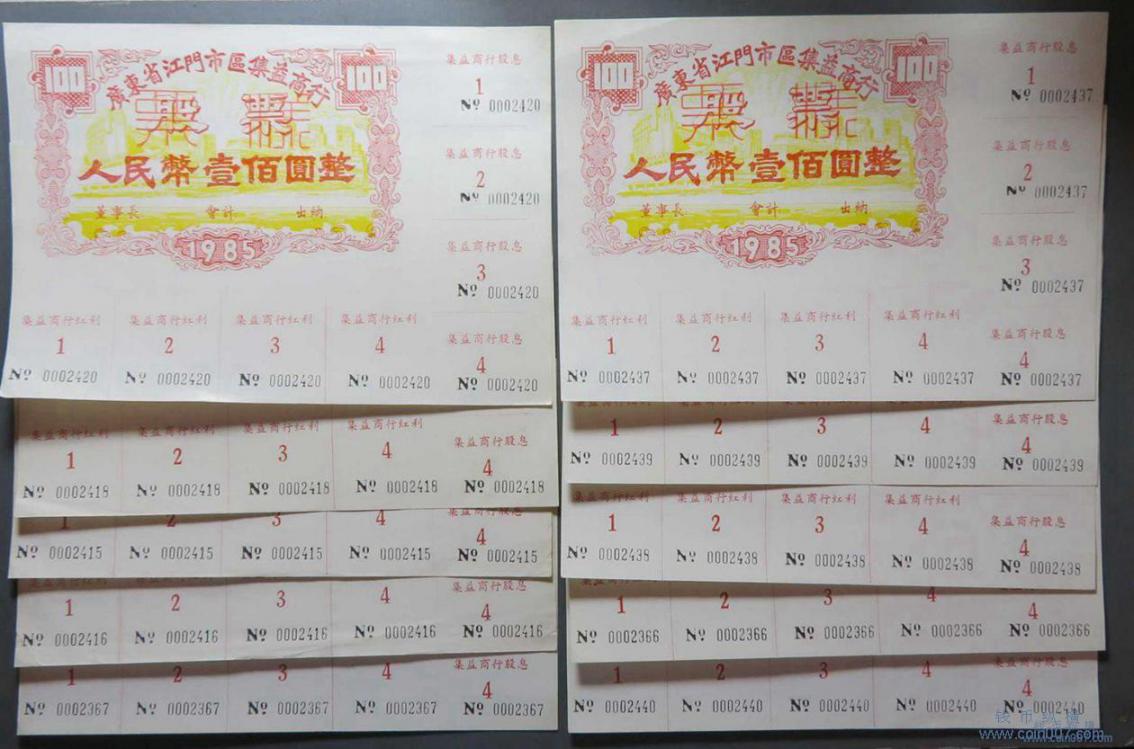 100
廣東省江門市區集益商行
100
股票
人民幣壹佰圓整
董事長 會計 出納
1985
集益商行股息
1
Nº 0002420
集益商行股息
2
Nº 0002420
集益商行股息
3
Nº 0002420
集益商行红利 集益商行红利 集益商行红利 集益商行红利 集益商行股息
1 2 3 4 4
Nº 0002420 Nº 0002420 Nº 0002420 Nº 0002420 Nº 0002420
集益商行红利 集益商行红利 集益商行红利 集益商行红利 集益商行股息
1 2 3 4 4
Nº 0002418 Nº 0002418 Nº 0002418 Nº 0002418 Nº 0002418
集益商行股息
1 2 3 4 4
Nº 0002415 Nº 0002415 Nº 0002415 Nº 0002415 Nº 0002415
集益商行股息
1 2 3 4 4
Nº 0002416 Nº 0002416 Nº 0002416 Nº 0002416 Nº 0002416
集益商行股息
1 2 3 4 4
Nº 0002367 Nº 0002367 Nº 0002367 Nº 0002367 Nº 0002367
100
廣東省江門市區集益商行
100
股票
人民幣壹佰圓整
董事長 會計 出納
1985
集益商行股息
1
Nº 0002437
集益商行股息
2
Nº 0002437
集益商行股息
3
Nº 0002437
集益商行红利 集益商行红利 集益商行红利 集益商行红利 集益商行股息
1 2 3 4 4
Nº 0002437 Nº 0002437 Nº 0002437 Nº 0002437 Nº 0002437
集益商行红利 集益商行红利 集益商行红利 集益商行红利 集益商行股息
1 2 3 4 4
Nº 0002439 Nº 0002439 Nº 0002439 Nº 0002439 Nº 0002439
集益商行红利 集益商行红利 集益商行红利 集益商行红利 集益商行股息
1 2 3 4 4
Nº 0002438 Nº 0002438 Nº 0002438 Nº 0002438 Nº 0002438
集益商行股息
1 2 3 4 4
Nº 0002366 Nº 0002366 Nº 0002366 Nº 0002366 Nº 0002366
集益商行股息
1 2 3 4 4
Nº 0002440 Nº 0002440 Nº 0002440 Nº 0002440 Nº 0002440
钱币纵横
www.coin007.com